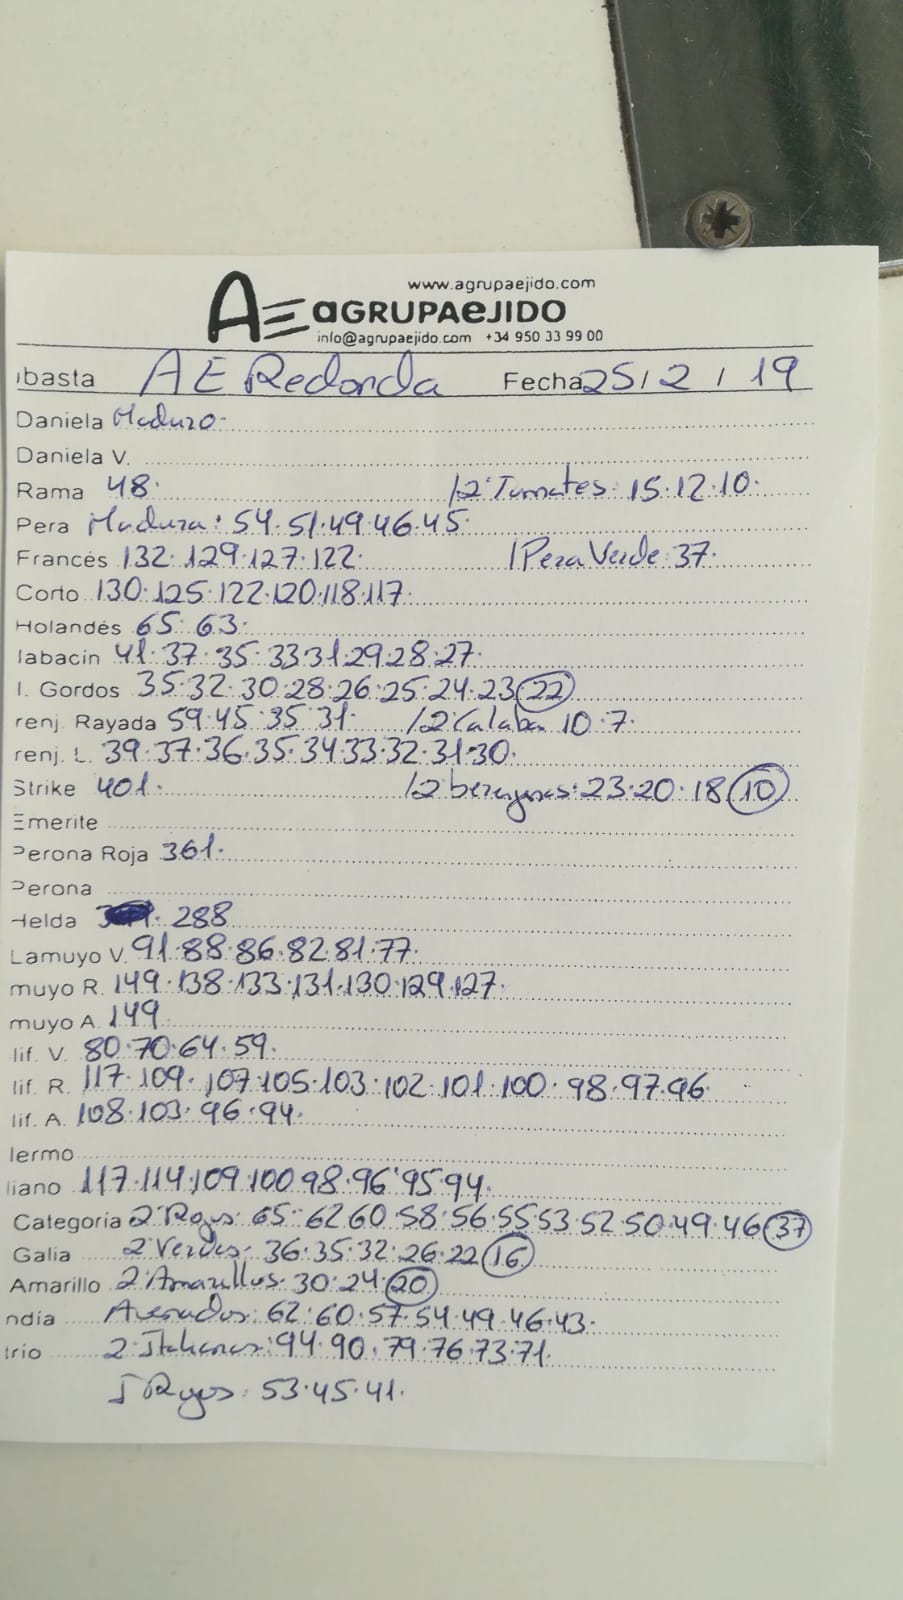 www.agrupaejido.com
AE aGRUPAeJIDO
info@agrupaejido.com +34 950 33 99 00
ubasta AE Redonda Fecha 25/2/19
Daniela Maduro-
Daniela V.
Rama 48. /2ª Tomates: 15.12.10.
Pera Madura: 54.51.49.46.45.
Francés 132.129.127.122. /Pera Verde: 37.
Corto 130.125.122.120.118.117.
Holandés 65.63.
labacín 41.37.35.33.31.29.28.27.
l. Gordos 35.32.30.28.26.25.24.23.22
renj. Rayada 59.45.35.31. /2ª Calaba 10.7.
renj. L. 39.37.36.35.34.33.32.31.30.
Strike 401. /2 berenjenas: 23.20.18.10
Emerite
Perona Roja 361.
Perona
Helda 288
Lamuyo V. 91.88.86.82.81.77.
muyo R. 149.138.133.131.130.129.127.
muyo A. 149
lif. V. 80.70.64.59.
lif. R. 117.109.107.105.103.102.101.100.98.97.96.
lif. A. 108.103.96.94.
lermo
liano 117.114.109.100.98.96.95.94.
Categoría 2ª Rojos: 65.62.60.58.56.55.53.52.50.49.46.37
Galia 2ª Verdes- 36.35.32.26.22.16
Amarillo 2ª Amarillos. 30.24.20
ndía Asurados: 62.60.57.54.49.46.43.
Trío 2 Italianos: 94.90.79.76.73.71.
J Rojos: 53.45.41.